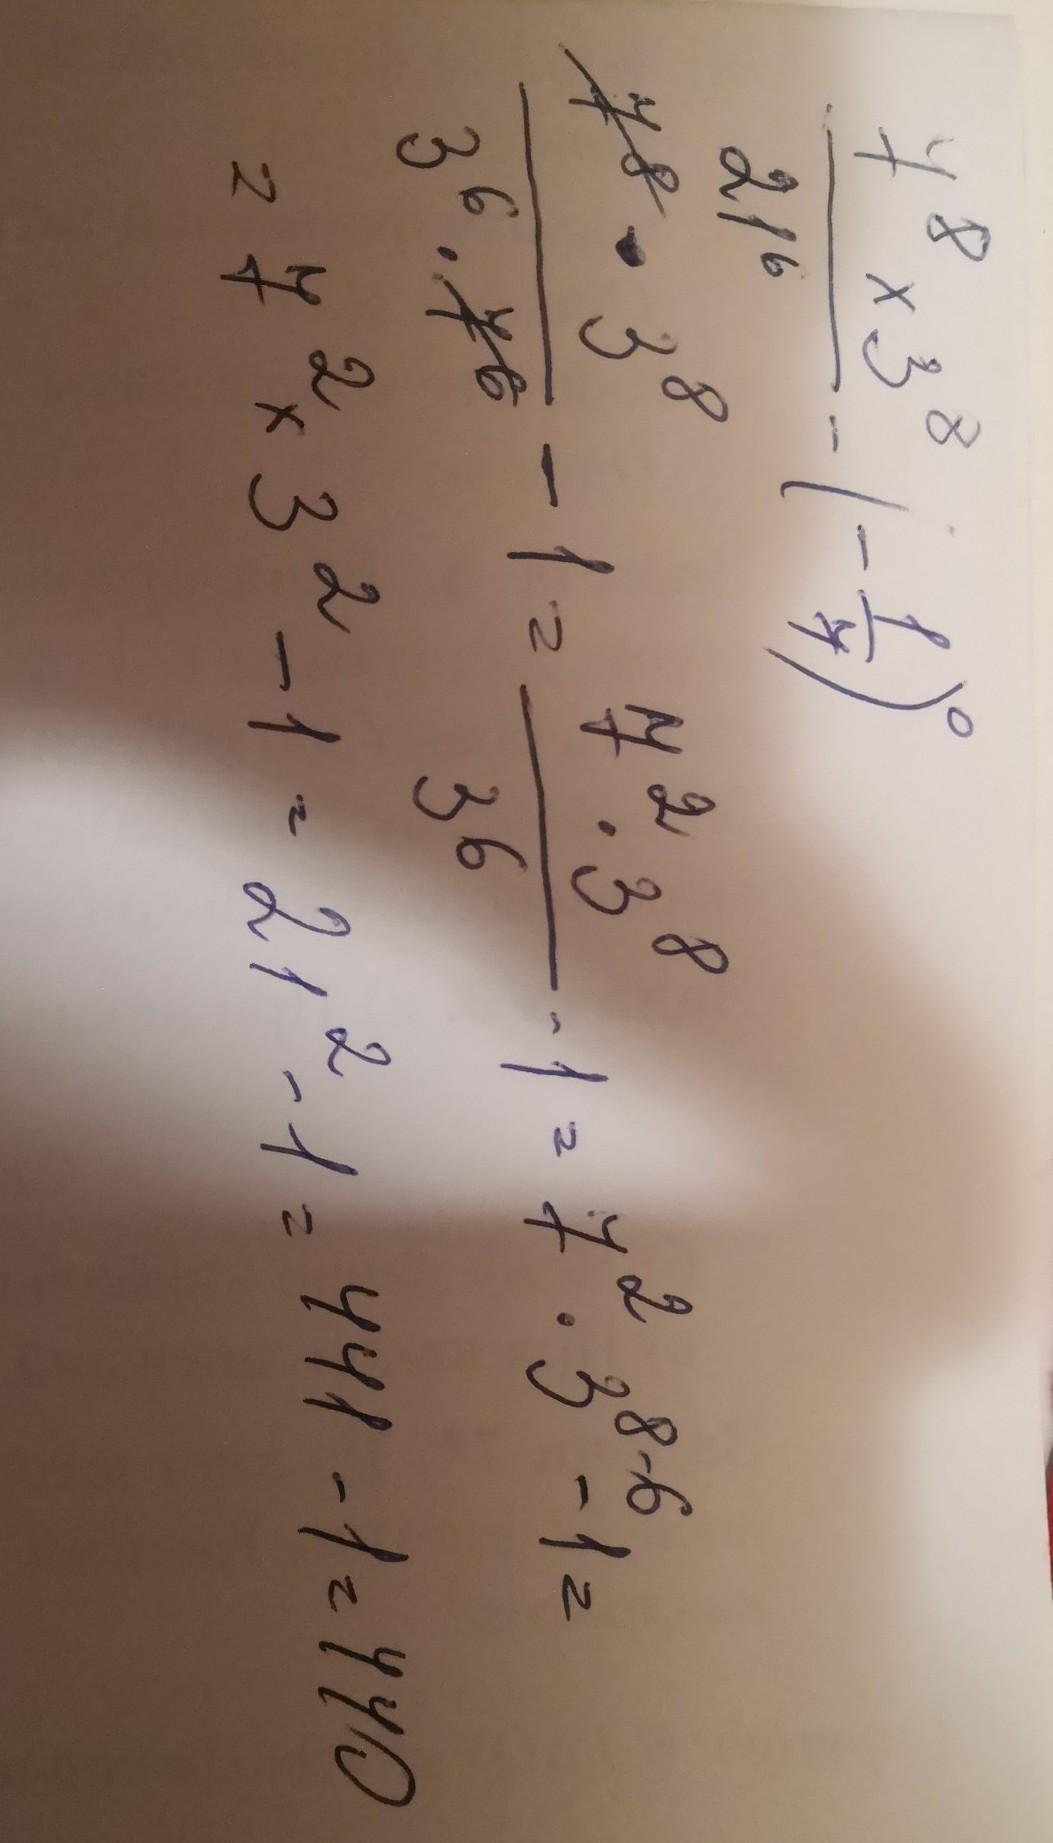 7⁸ × 3⁸ / 21⁶ - (-1/7)⁰
7⁸ · 3⁸ / 3⁶ · 7⁶ - 1 = 7² · 3⁸ / 3⁶ - 1 = 7² · 3⁸⁻⁶ - 1 =
= 7² × 3² - 1 = 21² - 1 = 441 - 1 = 440